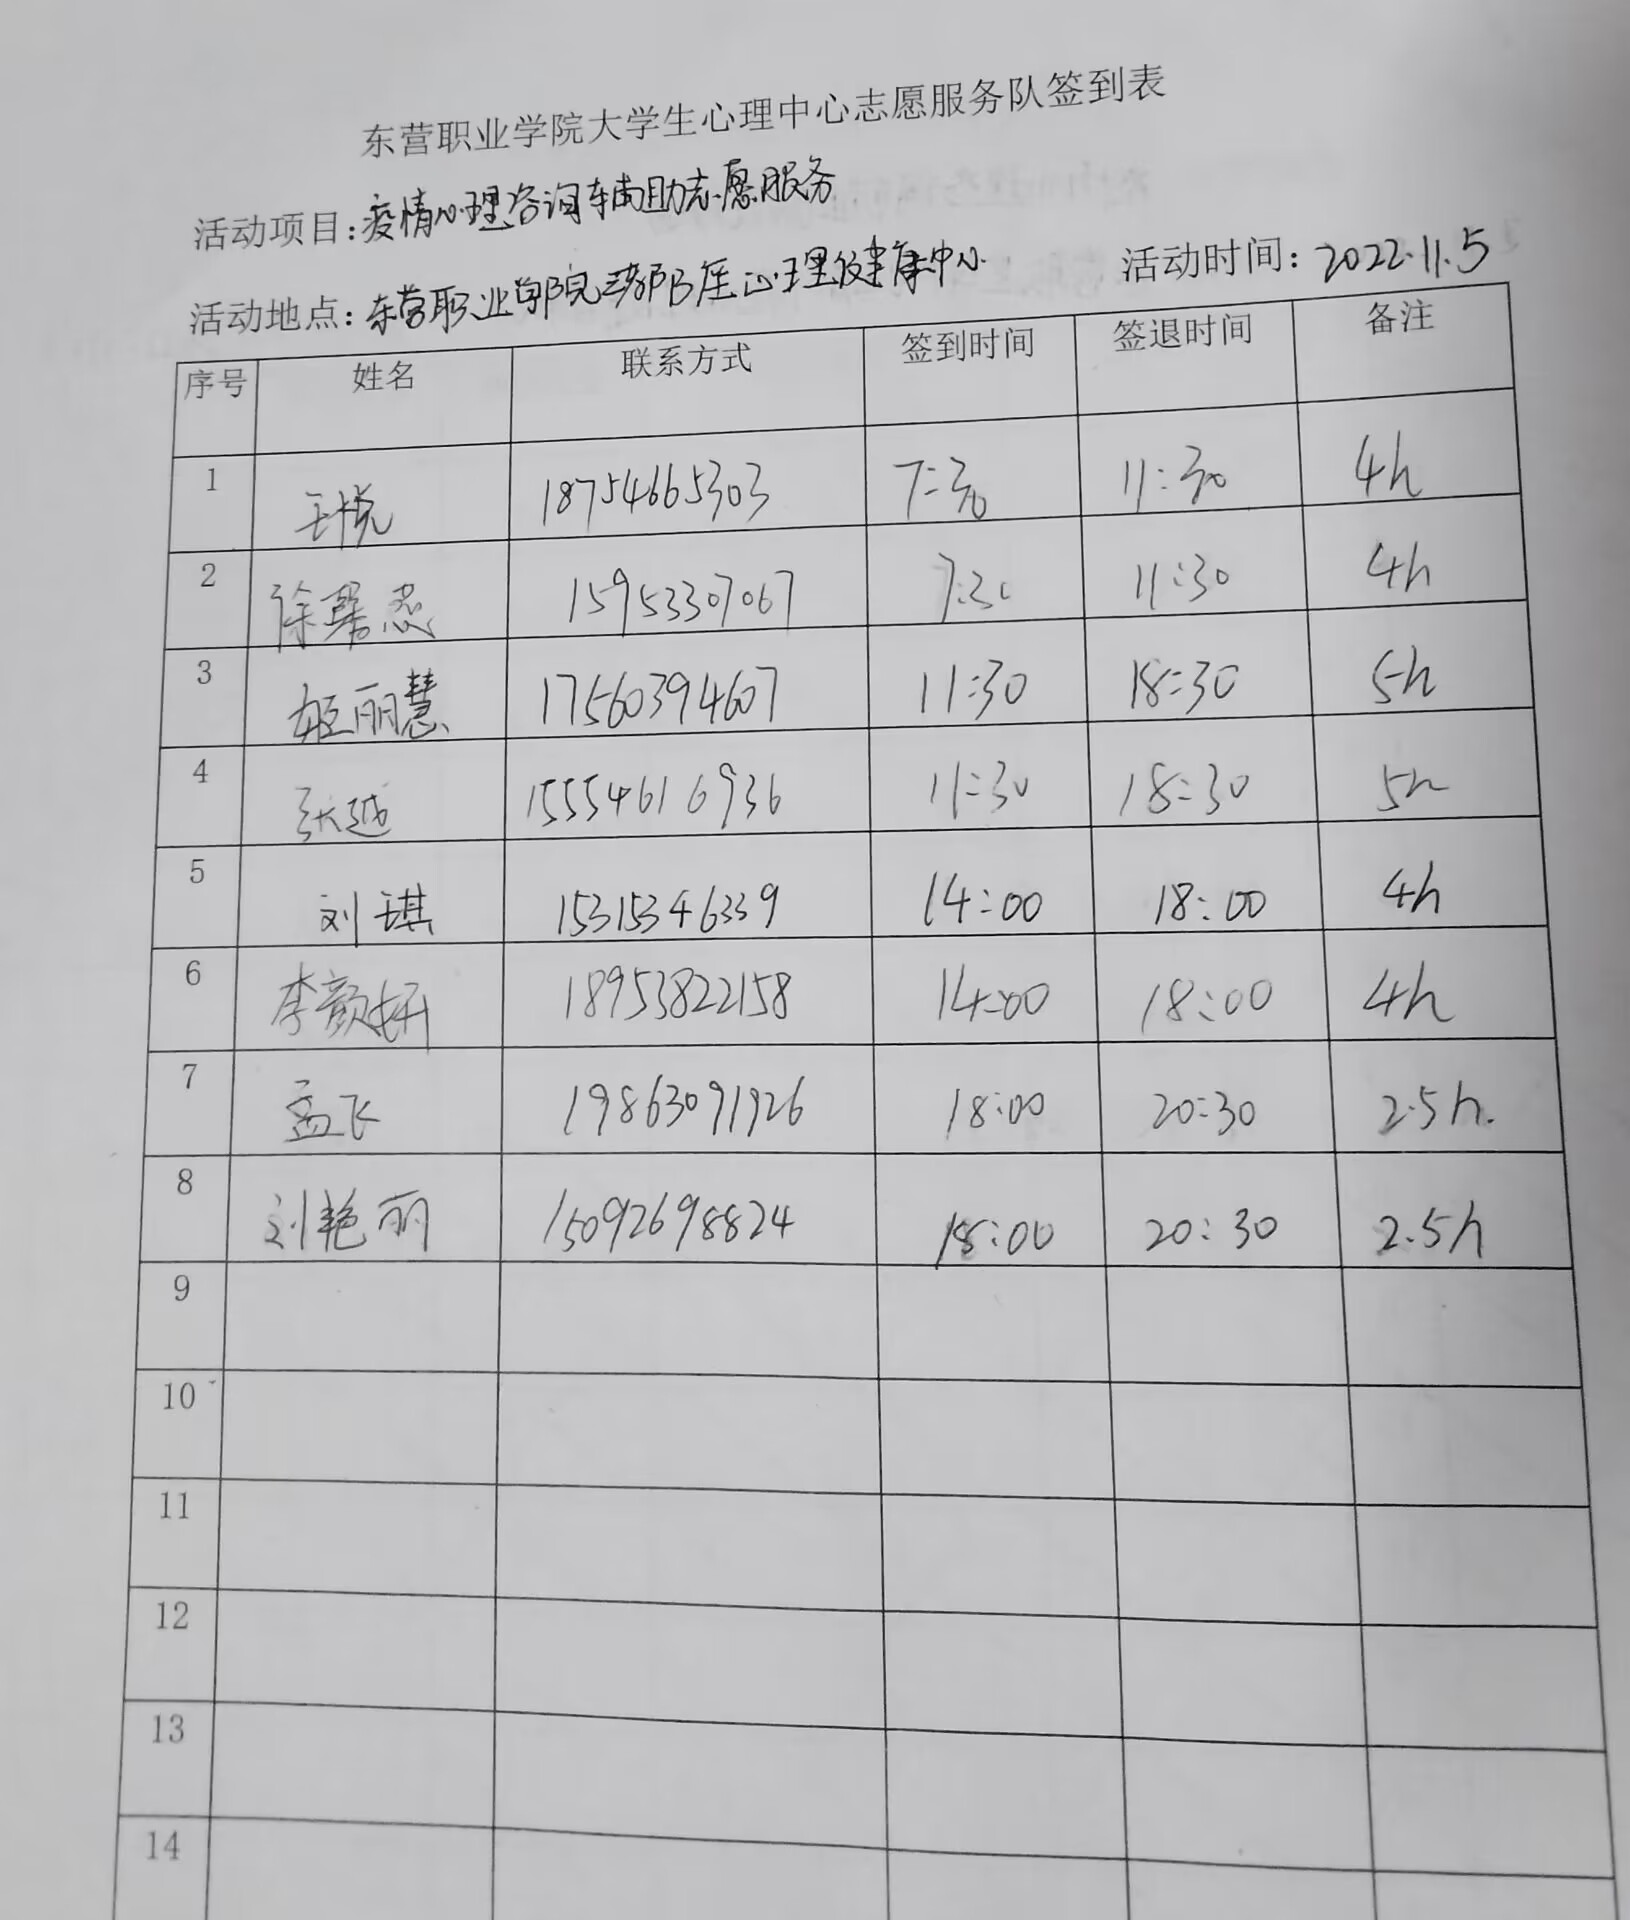 东营职业学院大学生心理中心志愿服务队签到表
活动项目:疫情心理咨询辅助志愿服务
活动地点:东营职业学院 心理健康中心 活动时间:2022.11.5
序号 姓名 联系方式 签到时间 签退时间 备注
1 王悦 18754665303 7:30 11:30 4h
2 徐 15953307067 7:30 11:30 4h
3 姬丽慧 17560394607 11:30 18:30 5h
4 张越 15554616936 11:30 18:30 5h
5 刘琪 15315346339 14:00 18:00 4h
6 李颜妍 18953822158 14:00 18:00 4h
7 孟飞 19863091926 18:00 20:30 2.5h.
8 刘艳丽 15092698824 18:00 20:30 2.5h
9
10
11
12
13
14